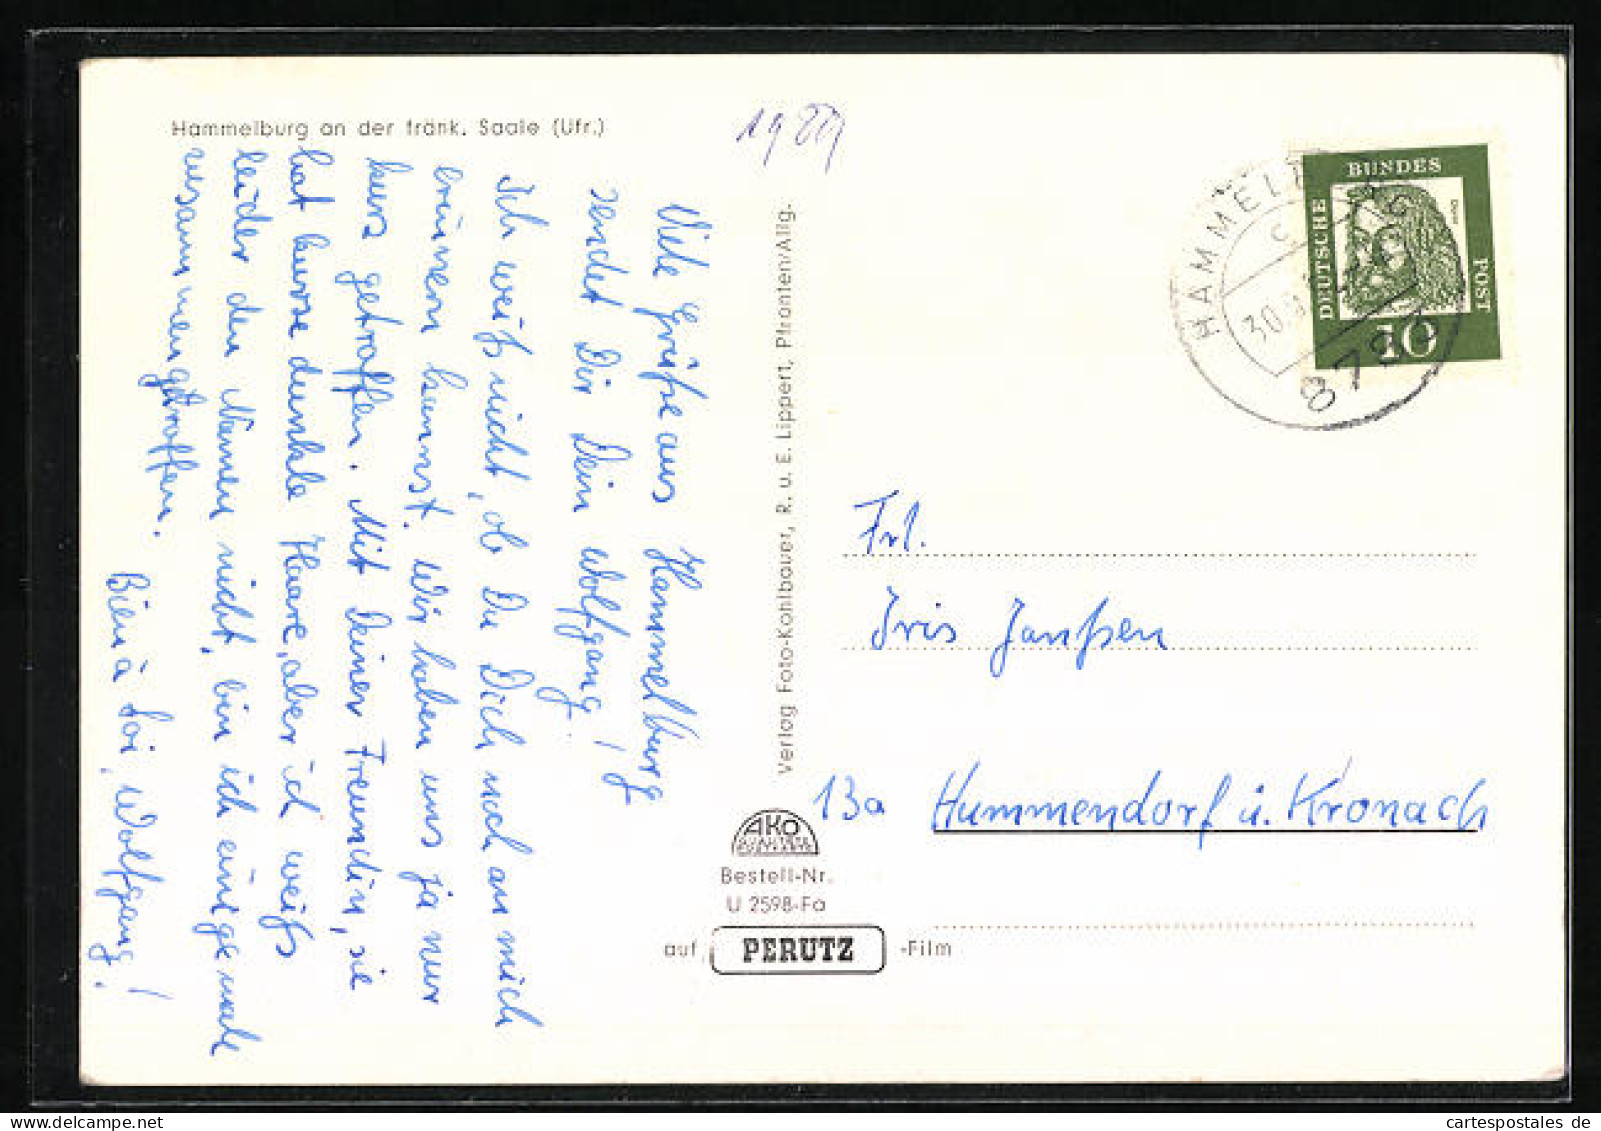 Hammelburg an der fränk. Saale (Ufr.)
Viele Grüße aus Hammelburg
sendet Dir Dein Wolfgang!
Ich weiß nicht, ob Du Dich noch an mich
erinnern kannst. Wir haben uns ja nur
kurz getroffen. Mit Deiner Freundin, sie
hat kurze dunkle Haare, aber ich weiß
leider den Namen nicht, bin ich einige male
zusammengetroffen.
Wolfgang!
Verlag Foto-Kohlbauer, R. u. E. Lippert, Pfronten/Allg.
AKO
Bestell-Nr.
U 2598-Fa
auf PERUTZ -Film
DEUTSCHE BUNDESPOST
10
HAMMELBURG
30.
8783
Frl.
Iris Janßen
13a Hummendorf ü. Kronach
www.cartespostales.de
cartespostales.de